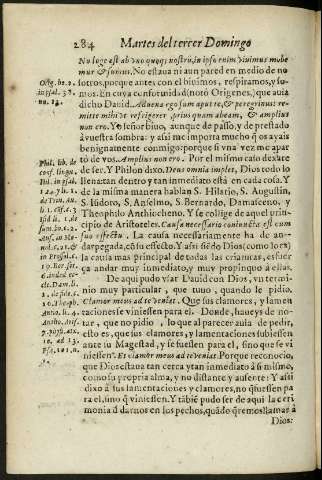 284 Martes del tercer Domingo
No longe est ab vno quoq; nostrū, in ipso enim viuimus mobe
mur & sumus. No estaua ni aun pared en medio de no
sotros, porque antes con el biuimos, respiramos, y su-
mos. En cuya conformidad notó Origenes, que auia
dicho Dauid. Aduena ego sum apud te, & peregrinus: re-
mitte mihi vt refrigerer, prius quam abeam, & amplius
non ero. Yo señor biuo, aunque de passo, y de prestado
à vuestra sombra: y assi me importa mucho q̃ os ayais
benignamente conmigo: porque si vna vez me apar
tò de vos. Amplius non ero. Por el mismo caso dexare
de ser. Y Philon dixo. Deus omnia implet, Dios todo lo
llena: tan dentro y tan inmediato està en cada cosa. Y
de la misma manera hablan S. Hilario, S. Augustin,
S. Isidoro, S. Anselmo, S. Bernardo, Damasceno, y
Theophilo Anthiocheno. Y se colige de aquel prin-
cipio de Aristoteles. Causa necessario coniuncta est cum
suo effectu. La causa necessariamente ha de an-
dar pegada, cō su effecto. Y assi siēdo Dios (como lo es)
la causa mas principal de todas las criaturas, es fuer
ça andar muy inmediato, y muy propinquo a ellas.
De aqui pudo vsar Dauid con Dios, vn termi-
nio muy particular, que tuuo, quando le pidio.
Clamor meus ad te veniat. Que sus clamores, y lamen
taciones se viniessen a el. Donde, haueys de no-
tar, que no pidio, lo que al parecer auia de pedir,
esto es, que sus clamores, y lamentaciones subiessen
ante su Magestad, y se fuessen para el, sino que se vi
niessen. Et clamor meus ad te veniat. Porque reconocio,
que Dios estaua tan cerca y tan inmediato à si mismo,
como su propria alma, y no distante y ausente: Y assi
dixo à sus lamentaciones y clamores, no q̃ fuessen pa
ra el, sino q̃ viniessen. Y tābiē pudo ser de aqui la ceri
monia d̃ darnos en los pechos, quādo q̃remos llamar à
Dios:
Orig. ho. 2.
in psal. 38.
nu. 13.
Phil. lib. de
conf. lingu.